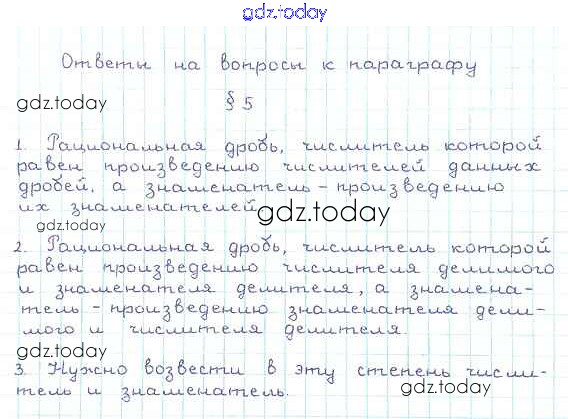 gdz.today
Ответы на вопросы к параграфу
gdz.today
§ 5
1. Рациональная дробь, числитель которой
равен произведению числителей данных
дробей, а знаменатель - произведению
их знаменателей
gdz.today
gdz.today
2. Рациональная дробь, числитель которой
равен произведению числителя делимого
и знаменателя делителя, а знамена-
тель - произведению знаменателя дели-
мого и числителя делителя.
gdz.today
3. Нужно возвести в эту степень числи-
тель и знаменатель.
gdz.today